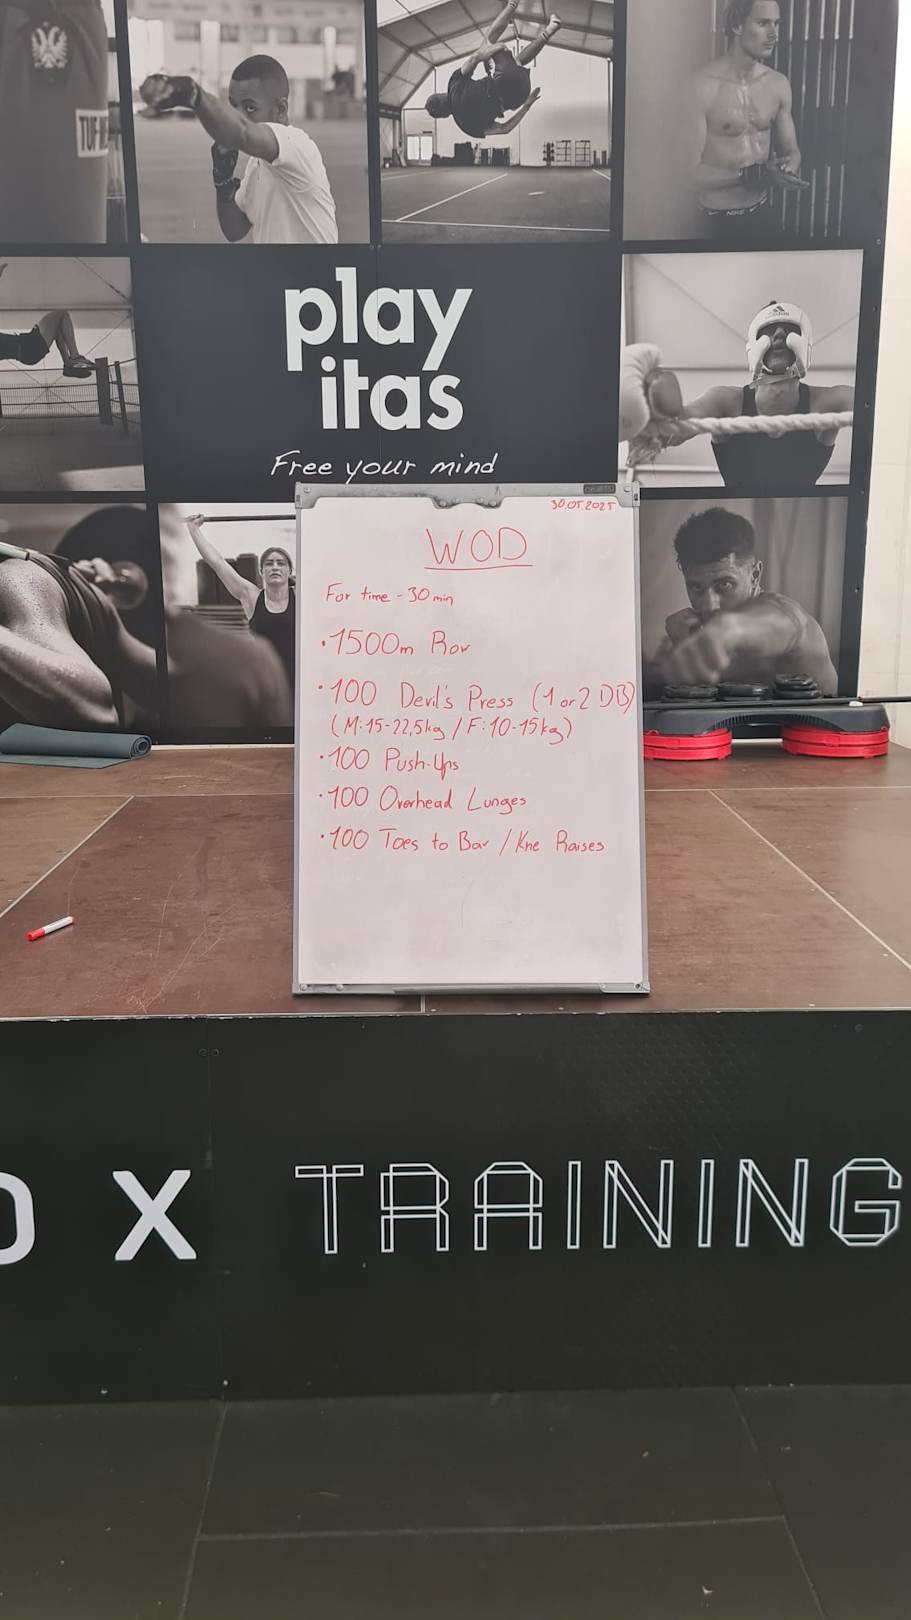 TUF WEAR
NIKE
play
itas
adidas
Free your mind
30.05.2025
WOD
For time - 30 min
• 1500m Row
• 100 Devil's Press (1 or 2 DB)
(M: 15-22,5kg / F: 10-15kg)
• 100 Push-Ups
• 100 Overhead Lunges
• 100 Toes to Bar / Kne Raises
OX TRAINING